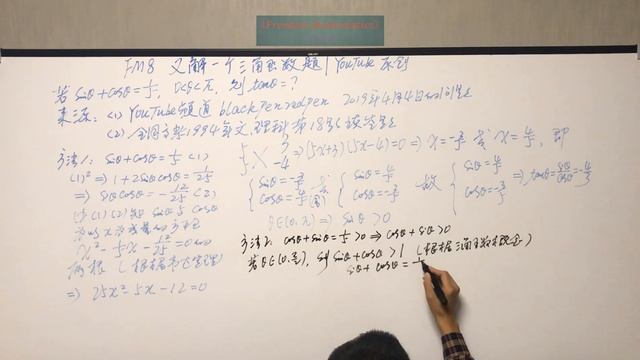 (Freedom Mathematics)
FM8 又解一个三角函数题 | YouTube 原创
若 sinθ + cosθ = 1/5, 0<θ<π, 则 tanθ = ?
来源: (1) YouTube 频道 blackpenredpen 2019年4月4日
(2) 全国高考1994年文,理科 第18
方法1: sinθ + cosθ = 1/5 (1)
(1)² ⇒ 1 + 2sinθcosθ = 1/25
⇒ sinθcosθ = -12/25 (2)
由(1)(2)知 sinθ 与 cosθ
x² - 1/5 x - 12/25 = 0
两根 (根据韦达定理)
⇒ 25x² - 5x - 12 = 0
5 3
5 -4 ⇒ (5x+3)(5x-4)=0 ⇒ x = -3/5 或 x = 4/5, 即
{ sinθ = -3/5 cosθ = 4/5 (舍) 或 { sinθ = 4/5 cosθ = -3/5 故 { sinθ = 4/5 cosθ = -3/5 ⇒ tanθ = sinθ/cosθ = -4/3
θ∈(0,π) ⇒ sinθ > 0
方法2: cosθ + sinθ = 1/5 > 0 ⇒ cosθ + sinθ > 0
若 θ∈(0, π/2), 则 sinθ + cosθ > 1 (根据三角函数概念)
sinθ + cosθ =